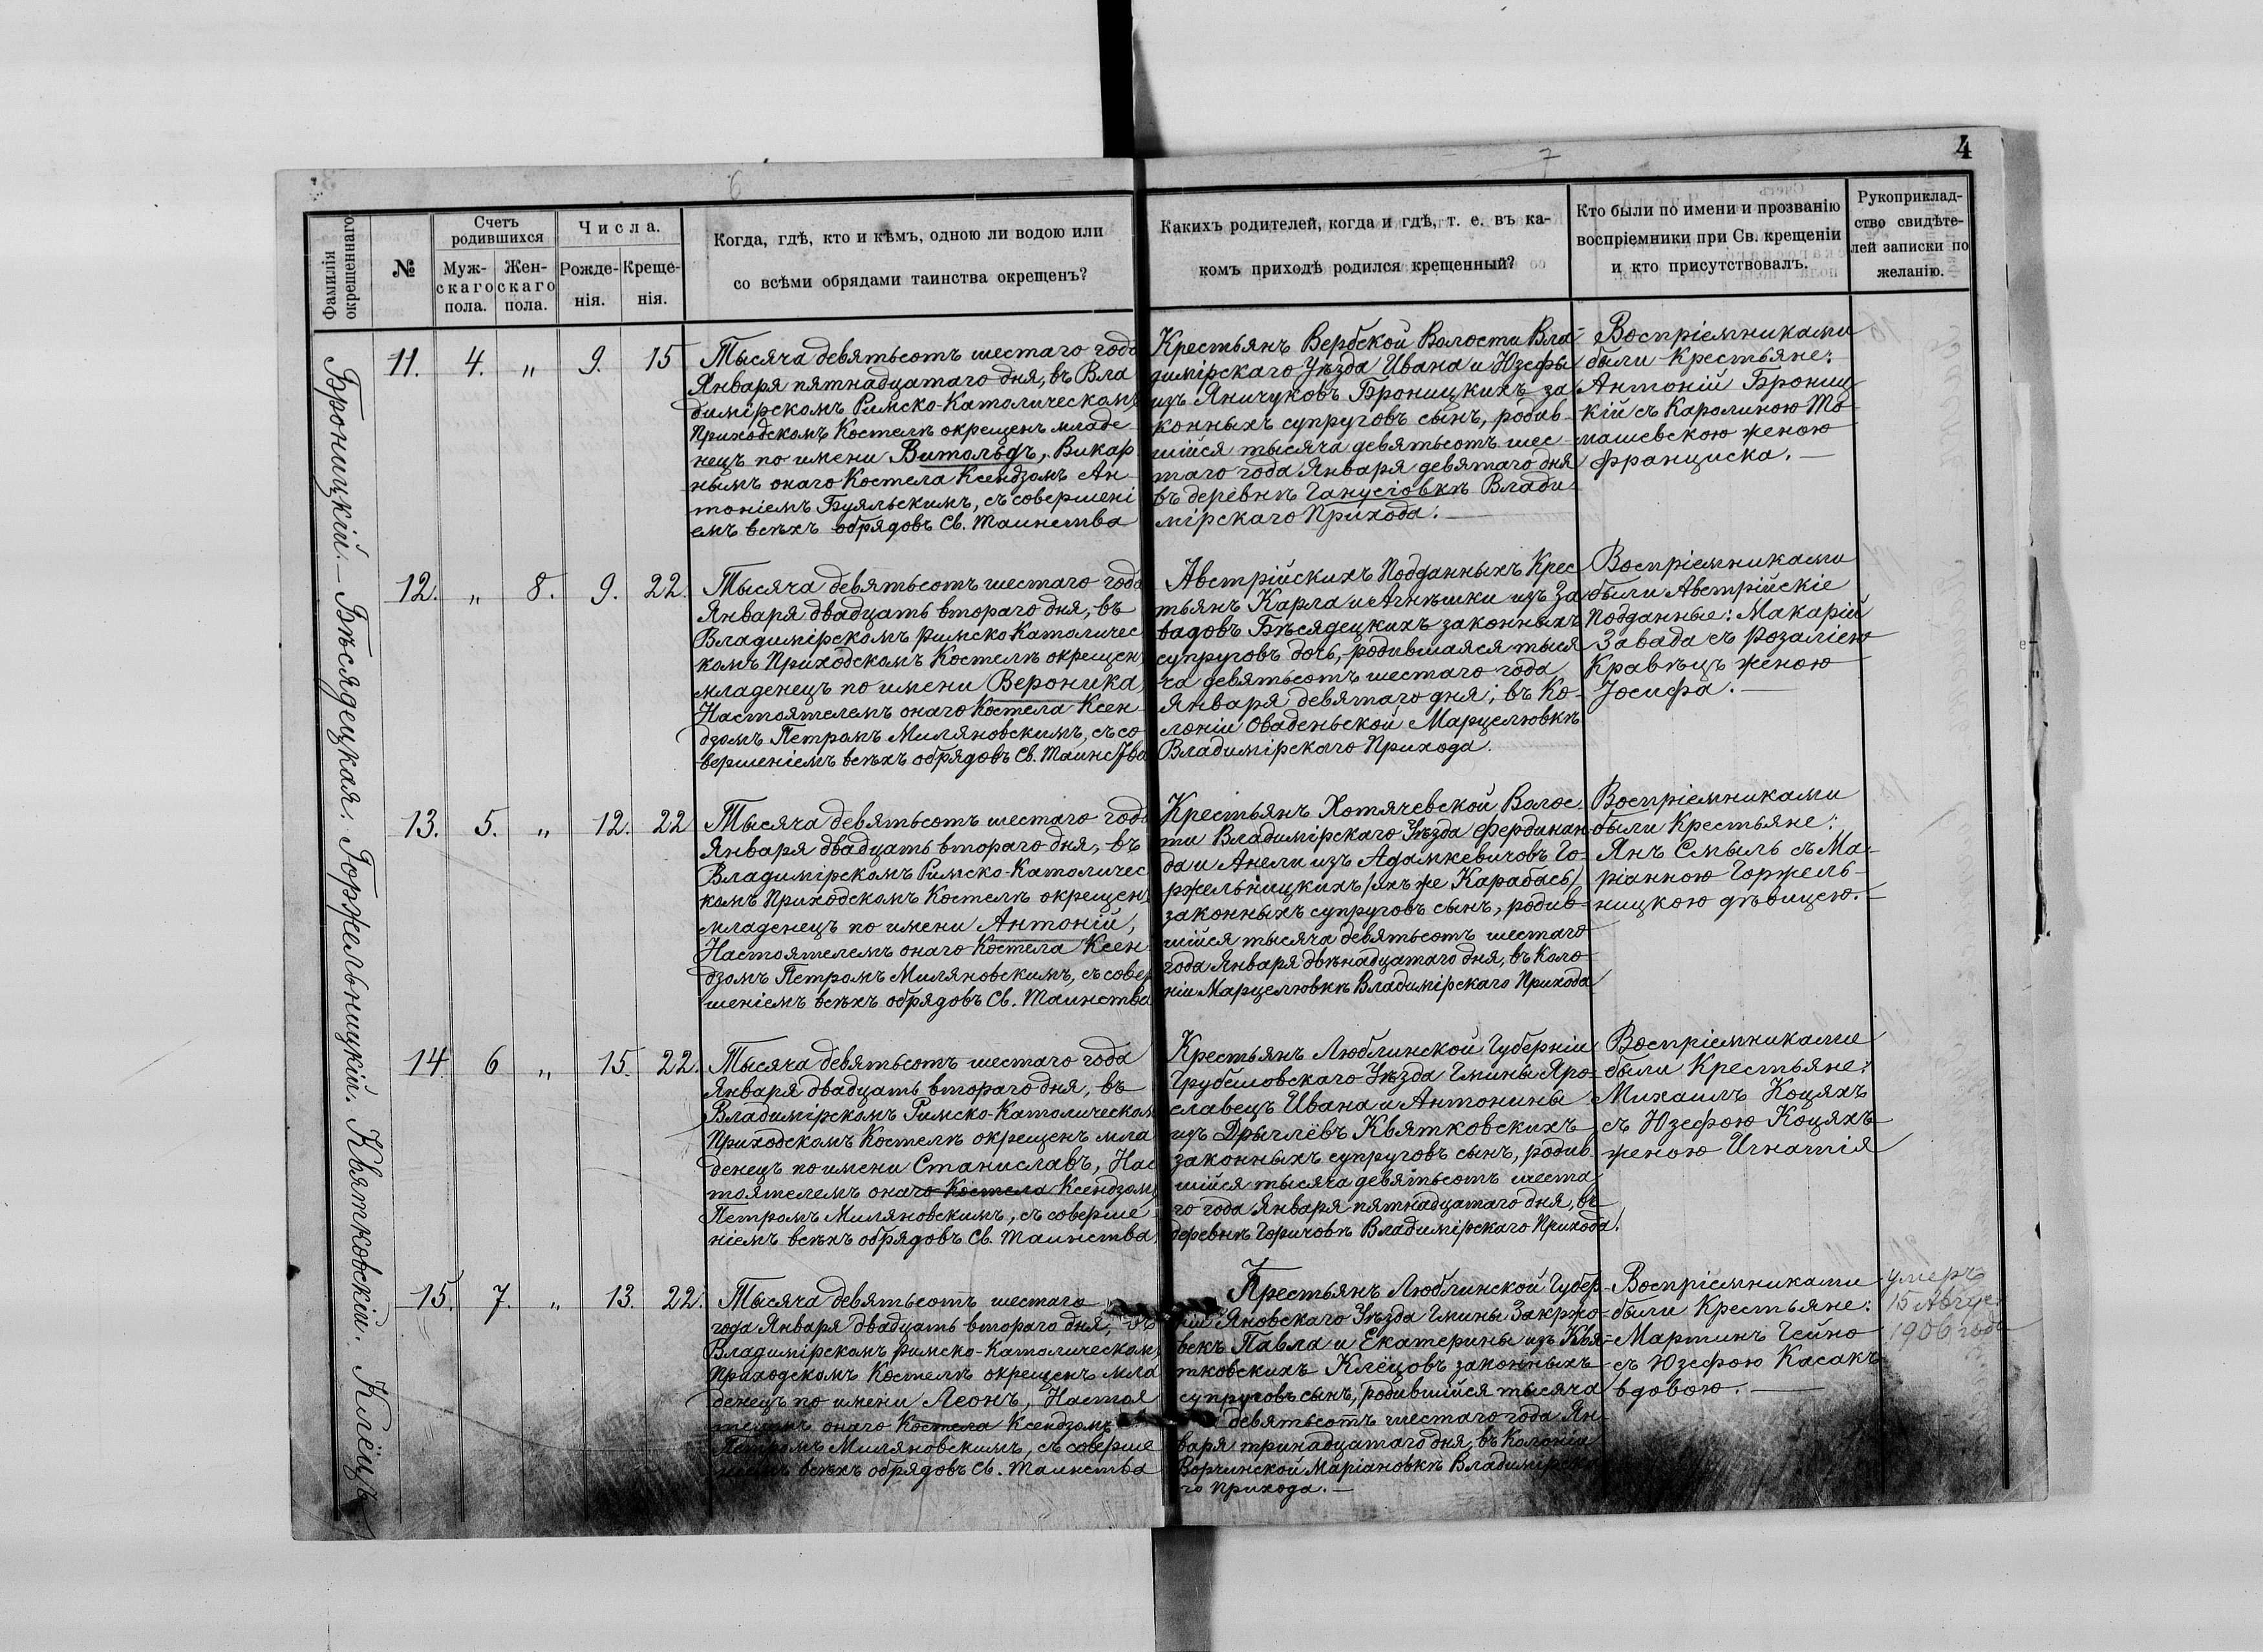 6
7
4
Фамилія окрещеннаго
№
Счетъ родившихся
Муж-скаго пола.
Жен-скаго пола.
Числа.
Рожде-нія.
Креще-нія.
Когда, гдѣ, кто и кѣмъ, одною ли водою или
со всѣми обрядами таинства окрещенъ?
Какихъ родителей, когда и гдѣ, т. е. въ ка-
комъ приходѣ родился крещенный?
Кто были по имени и прозванію
воспріемники при Св. крещеніи
и кто присутствовалъ.
Рукоприклад-
ство свидѣте-
лей записки по
желанію.
Броницкій. — Бѣсядецкая. Горжельницкій. Квятковскій. Клёцъ
11. 4. „ 9. 15
Тысяча девятьсотъ шестаго года
Января пятнадцатаго дня, въ Вла
димірскомъ Римско-Католическомъ
Приходскомъ Костелѣ окрещенъ младе
нецъ по имени Витольдъ, Викар
нымъ онаго Костела Ксендзомъ Ан
тоніемъ Буяльскимъ, съ совершені
емъ всѣхъ обрядовъ Св. Таинства
Крестьянъ Вербской Волости Вла-
димірскаго Уѣзда Ивана и Юзефы
изъ Яничуковъ Броницкихъ за
конныхъ супруговъ сынъ, родив
шійся тысяча девятьсотъ шес
таго года Января девятаго дня
въ деревнѣ Ганусіовкѣ Влади
мірскаго Прихода. —
Воспріемниками
были Крестьяне:
Антоній Брониц
кій съ Каролиною То-
машевскою женою
Франциска. —
12. „ 8. 9. 22.
Тысяча девятьсотъ шестаго года
Января двадцать втораго дня, въ
Владимірскомъ Римско Католичес
комъ Приходскомъ Костелѣ окрещенъ
младенецъ по имени Вероника,
Настоятелемъ онаго Костела Ксен-
дзомъ Петромъ Миляновскимъ, съ со
вершеніемъ всѣхъ обрядовъ Св. Таинства
Австрійскихъ Подданныхъ Крес
тьянъ Карла и Агнѣшки изъ За
вадовъ Бѣсядецкихъ законныхъ
супруговъ дочь, родившаяся тыся
ча девятьсотъ шестаго года
Января девятаго дня, въ Ко-
лоніи Оваденьской Марцелювкѣ
Владимірскаго Прихода.
Воспріемниками
были Австрійскіе
Подданные: Макарій
Завада съ Розаліею
Кравѣцъ женою
Іосифа. —
13. 5. „ 12. 22
Тысяча девятьсотъ шестаго года
Января двадцать втораго дня, въ
Владимірскомъ Римско-Католичес
комъ Приходскомъ Костелѣ окрещенъ
младенецъ по имени Антоній,
Настоятелемъ онаго Костела Ксен-
дзомъ Петромъ Миляновскимъ, съ совер
шеніемъ всѣхъ обрядовъ Св. Таинства
Крестьянъ Хотячевской Волос
ти Владимірскаго Уѣзда Фердинан
да и Анели изъ Адамкевичовъ Го-
ржельницкихъ /ихъ же Карабась/
законныхъ супруговъ сынъ, родив-
шійся тысяча девятьсотъ шестаго
года Января двѣнадцатаго дня, въ Коло-
ніи Марцелювкѣ Владимірскаго Прихода
Воспріемниками
были Крестьяне:
Янъ Смыль съ Ма-
ріанною Горжель-
ницкою дѣвицею. —
14. 6 „ 15. 22.
Тысяча девятьсотъ шестаго года
Января двадцать втораго дня, въ
Владимірскомъ Римско-Католическом
Приходскомъ Костелѣ окрещенъ мла
денецъ по имени Станиславъ, Нас
тоятелемъ онаго Костела Ксендзомъ
Петромъ Миляновскимъ, съ соверше
ніемъ всѣхъ обрядовъ Св. Таинства.
Крестьянъ Люблинской Губерніи
Грубешовскаго Уѣзда Гмины Яро-
славецъ Ивана и Антонины
изъ Дрычлёвъ Квятковскихъ
законныхъ супруговъ сынъ, родив
шійся тысяча девятьсотъ шеста
го года Января пятнадцатаго дня, въ
деревнѣ Горичовѣ Владимірскаго Прихода.
Воспріемниками
были Крестьяне:
Михаилъ Коцяхъ
съ Юзефою Коцяхъ
женою Игнатія
15. 7. „ 13. 22.
Тысяча девятьсотъ шестаго
года Января двадцать втораго дня, въ
Владимірскомъ Римско-Католическомъ
Приходскомъ Костелѣ окрещенъ мла
денецъ по имени Леонъ, Настоя
телемъ онаго Костела Ксендзомъ
Петромъ Миляновскимъ, съ соверше
ніемъ всѣхъ обрядовъ Св. Таинства
Крестьянъ Люблинской Губер-
ніи Яновскаго Уѣзда Гмины Закржо-
векъ Павла и Екатерины изъ Квя-
тковскихъ Клёцовъ законныхъ
супруговъ сынъ, родившійся тысяча
девятьсотъ шестаго года Ян-
варя тринадцатаго дня, въ Колоніи
Ворчинской Маріановкѣ Владимірска
го Прихода. —
Воспріемниками
были Крестьяне:
Мартинъ Гейно
съ Юзефою Касакъ
вдовою. —
умеръ
15 Авгус.
1906 года